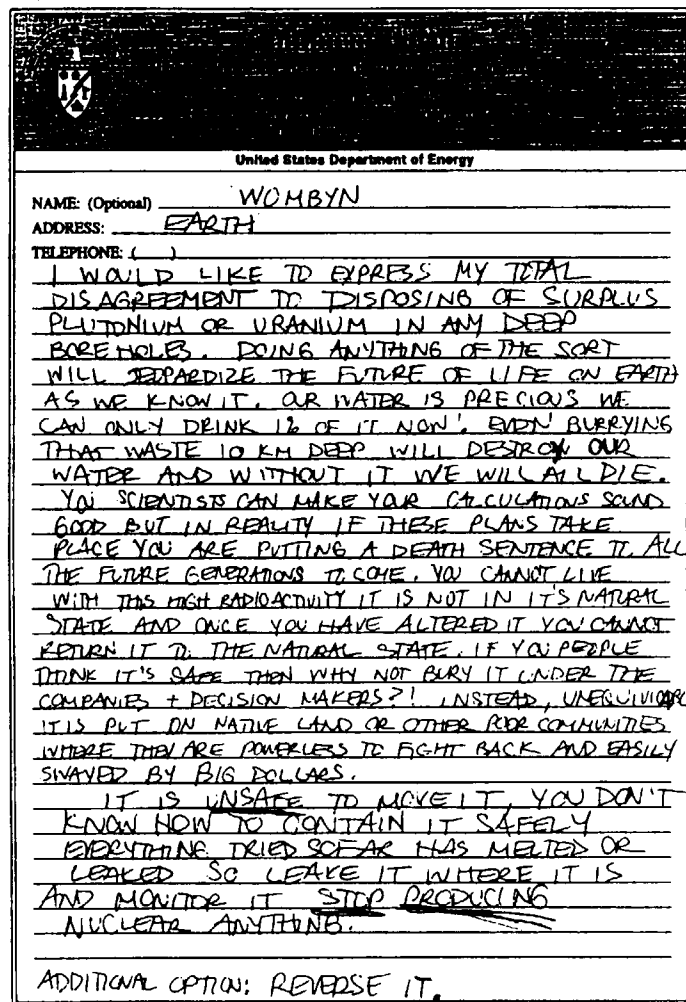 United States Department of Energy
NAME: (Optional) WOMBYN
ADDRESS: EARTH
TELEPHONE: ( )
I WOULD LIKE TO EXPRESS MY TOTAL
DISAGREEMENT TO DISPOSING OF SURPLUS
PLUTONIUM OR URANIUM IN ANY DEEP
BOREHOLES. DOING ANYTHING OF THE SORT
WILL JEOPARDIZE THE FUTURE OF LIFE ON EARTH
AS WE KNOW IT. OUR WATER IS PRECIOUS WE
CAN ONLY DRINK 1% OF IT NOW! EVEN BURRYING
THAT WASTE 10 KM DEEP WILL DESTROY OUR
WATER AND WITHOUT IT WE WILL ALL DIE.
YOU SCIENTISTS CAN MAKE YOUR CALCULATIONS SOUND
GOOD BUT IN REALITY IF THESE PLANS TAKE
PLACE YOU ARE PUTTING A DEATH SENTENCE TO ALL
THE FUTURE GENERATIONS TO COME. YOU CANNOT LIVE
WITH THIS HIGH RADIOACTIVITY IT IS NOT IN IT'S NATURAL
STATE AND ONCE YOU HAVE ALTERED IT YOU CANNOT
RETURN IT TO THE NATURAL STATE. IF YOU PEOPLE
THINK IT'S SAFE THEN WHY NOT BURY IT UNDER THE
COMPANIES + DECISION MAKERS?! INSTEAD,
IT IS PUT ON NATIVE LAND OR OTHER POOR COMMUNITIES
WHERE THEY ARE POWERLESS TO FIGHT BACK AND EASILY
SWAYED BY BIG DOLLARS.
IT IS UNSAFE TO MOVE IT, YOU DON'T
KNOW HOW TO CONTAIN IT SAFELY
EVERYTHING TRIED SO FAR HAS MELTED OR
LEAKED SO LEAVE IT WHERE IT IS
AND MONITOR IT STOP PRODUCING
NUCLEAR ANYTHING.
ADDITIONAL OPTION: REVERSE IT.